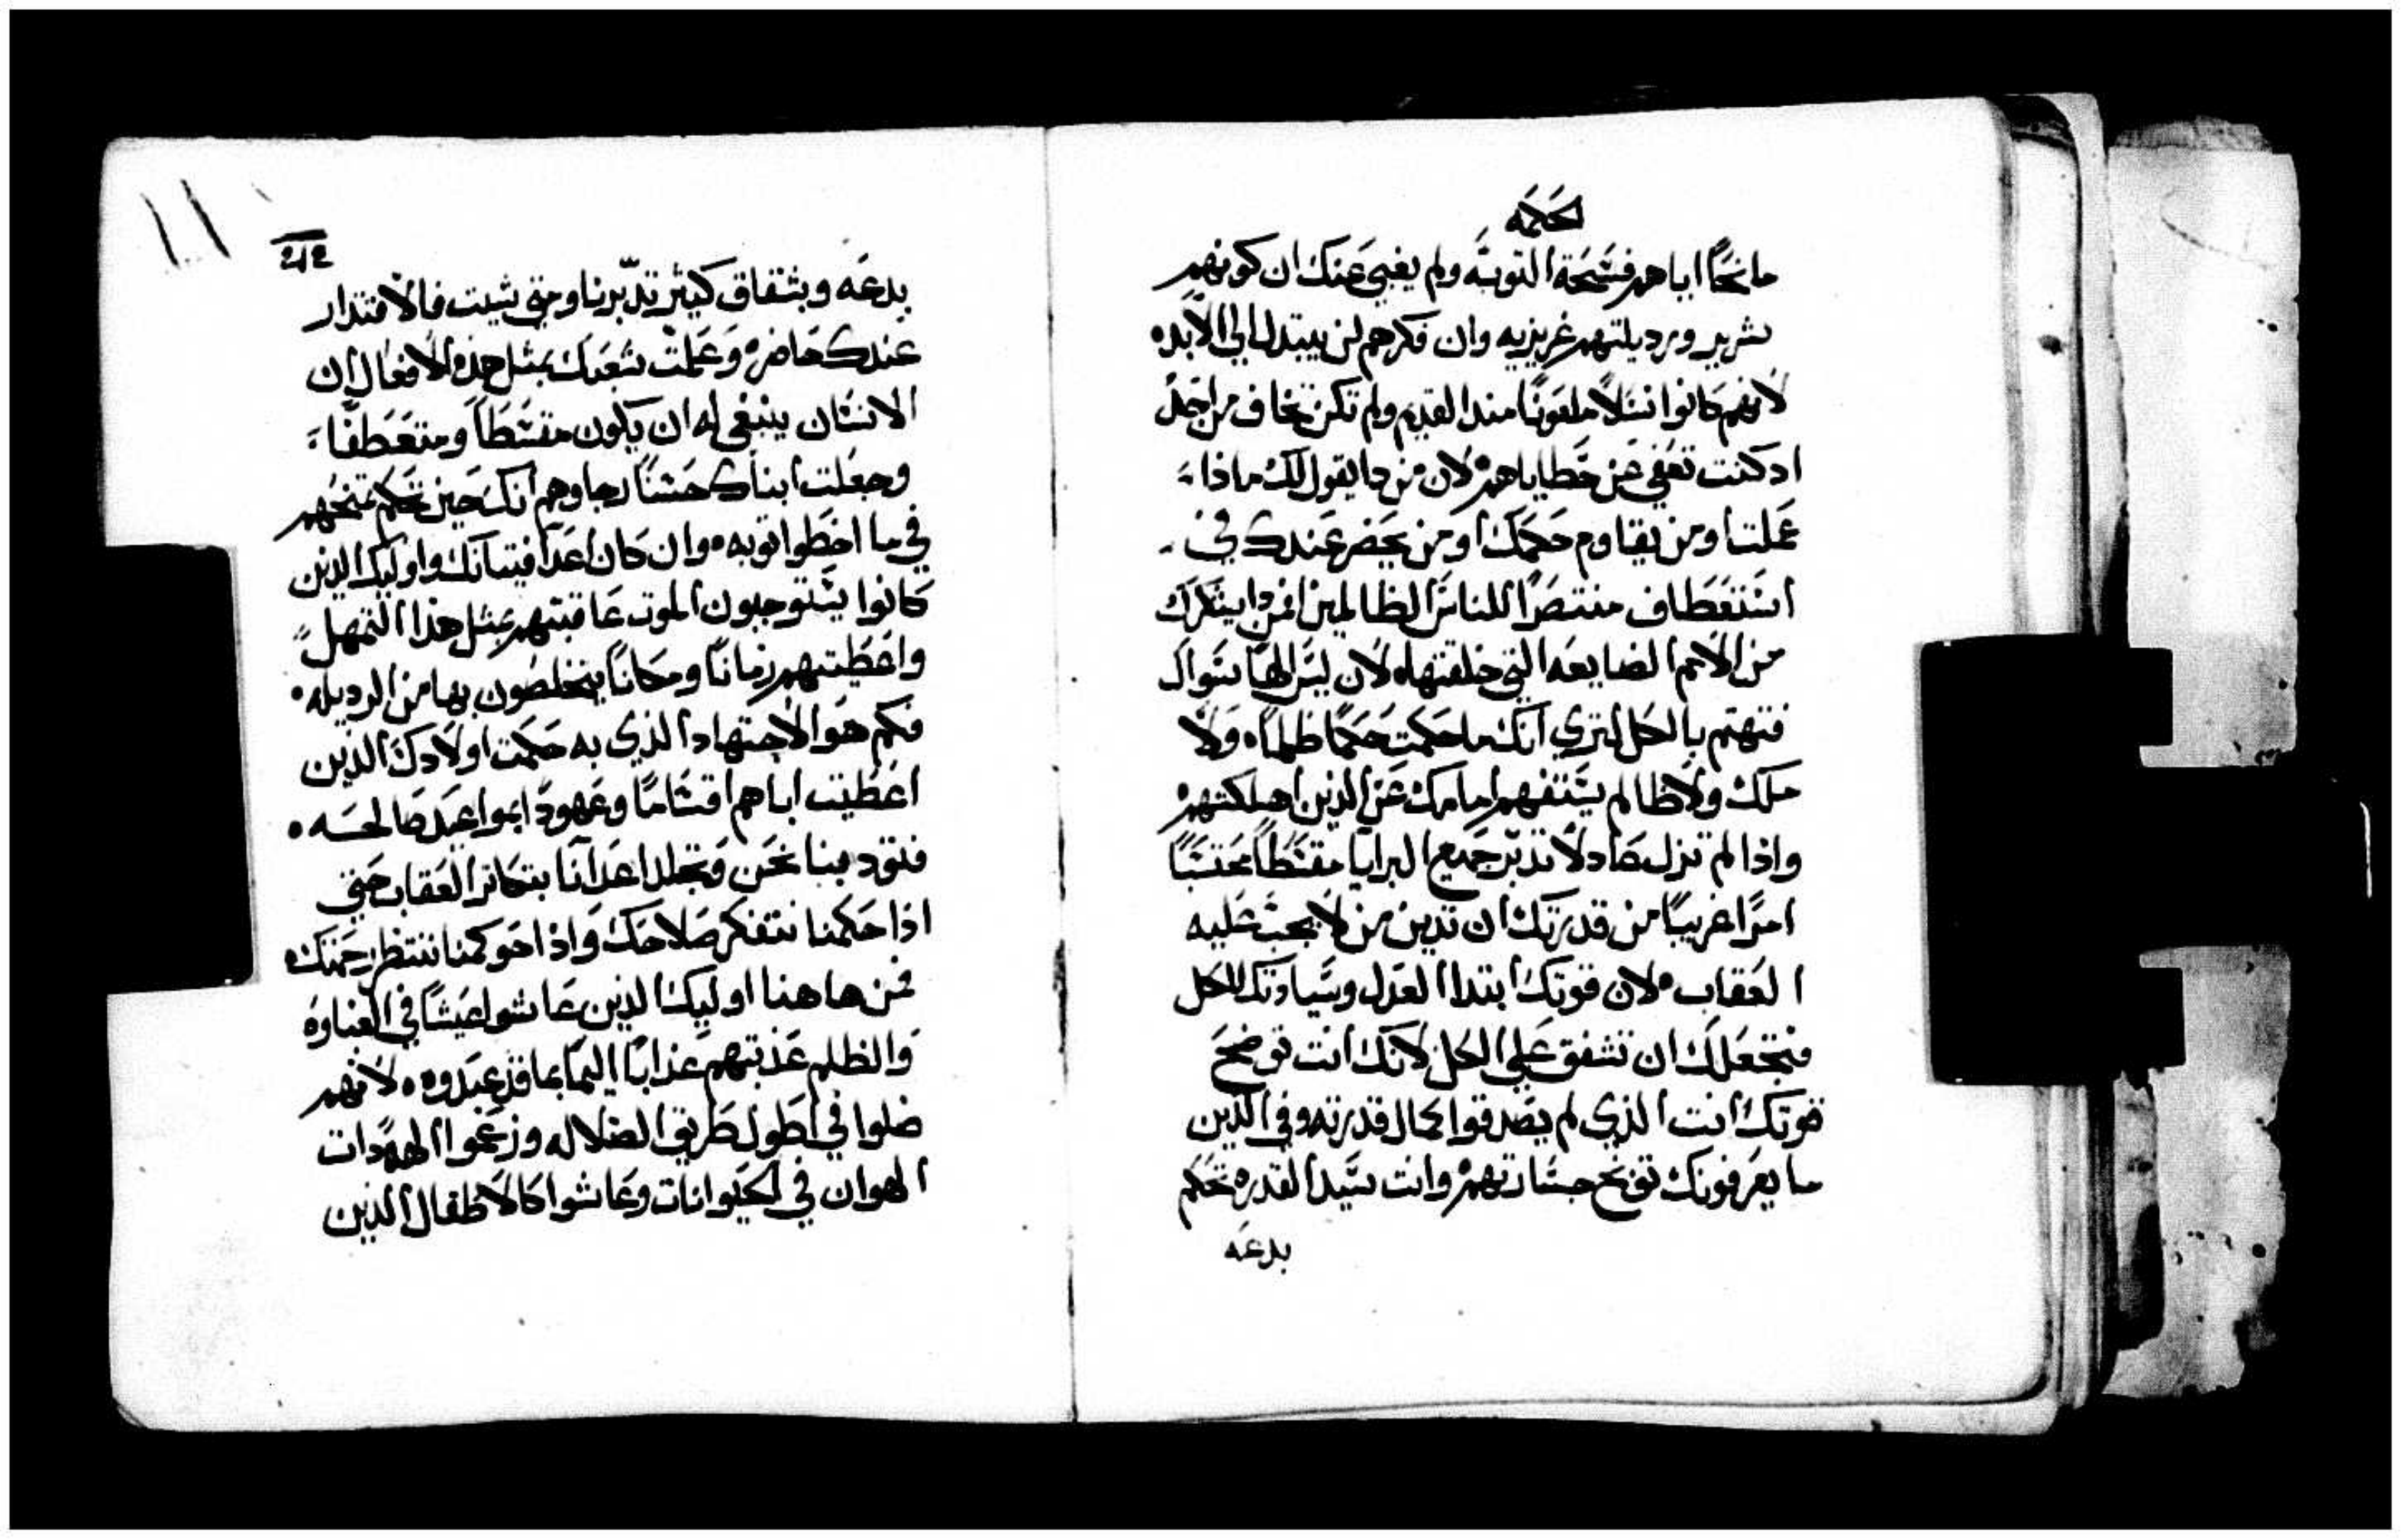 الحكمه
مانحًا اياهم فسحة التوبه ولم يغبي عنك ان كونهم
شرير ورديلتهم غريزيه وان فكرهم لن يتبدل الي الابده
لانهم كانوا نسلاً ملعونًا مند القديم ولم تكن تخاف من احد
اد كنت تعفي عن خطاياهم لان من دا يقول لك ماذا
عملت او من يقاوم حكمك او من يحضر عندك في
استعطاف منتصرًا للناس الظالمين او من دا يشكك
من الامم الضايعه التي خلقتها لان ليس الهًا سواك
فتهتم بالكل لتري انك ما حكمت حكمًا ظلمًا ولا
ملك ولا ظالم يستفهم امامك عن الذين اهلكتهم
واذا لم تزل عادلا تدبر جميع البرايا مقسطًا محتسبًا
امرًا غريبًا من قدرتك ان تدين من لا يجب عليه
العقاب لان قوتك ابتدا العدل وسيادتك للكل
فتجعلك ان تشفق علي الكل لانك انت توضح
قوتك انت الذي لم يصدقوا بكمال قدرته وفي الذين
ما يعرفونك توبخ جسارتهم وانت سيد القدره تحكم
بدعه
212
بدعه وبشفاق كثير تدبرنا ومتي شيت فالاقتدار
عندك حاضر وعملت شعبك بمثل هذه الافعال ان
الانسان ينبغي له ان يكون مقسطًا ومتعطفًا
وجعلت ابناك حسنًا رجاوهم انك حين تحكم تمنحهم
في ما اخطوا توبه وان كان اعدا فتيانك واوليك الذين
كانوا يستوجبون الموت عاقبتهم بمثل هذا التمهل
واعطيتهم زمانًا ومكانًا يتخلصون بها من الرديله
فكم هو الاجتهاد الذي به حكمت اولادك الذين
اعطيت اباهم اقسامًا وعهودًا بمواعيد صالحه
فتودبنا نحن وتجلد اعدانا بتكاثر العقاب حتي
اذا حكمنا نتفكر صلاحك واذا حوكمنا ننتظر رحمتك
فمن هاهنا اوليك الذين عاشوا عيشًا في الغباوه
والظلم عذبتهم عذابًا اليمًا بما قد عبدوه لانهم
ضلوا في اطول طريق الضلاله وزعموا الهه دات
الهوان في الحيوانات وعاشوا كالاطفال الذين